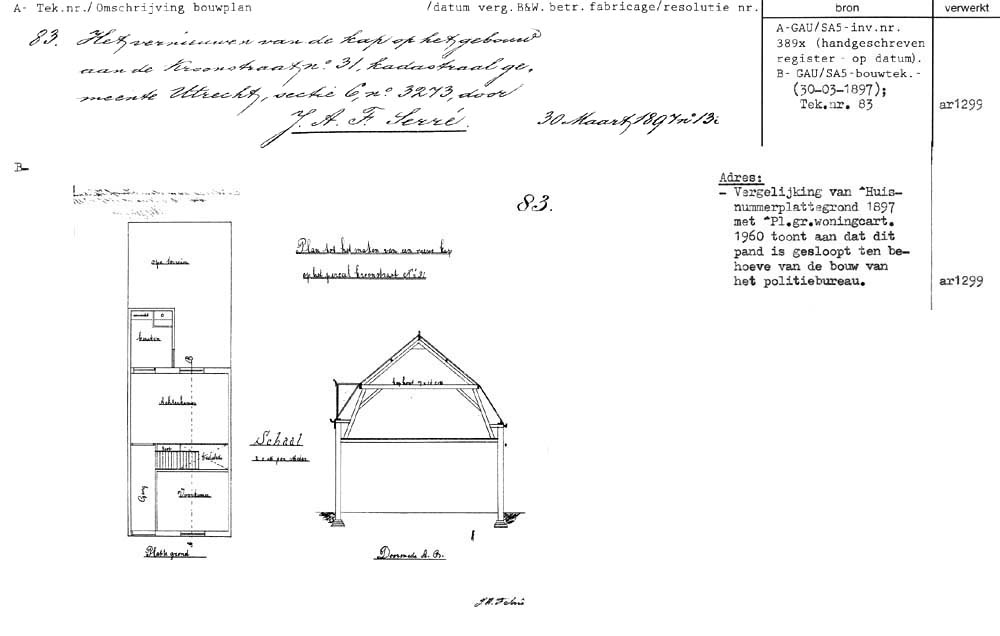 A- Tek.nr./Omschrijving bouwplan /datum verg.B&W.betr.fabricage/resolutie nr. bron verwerkt
83. Het vernieuwen van de kap op het gebouw
aan de Kroonstraat nº 31, kadastraal ge,
meente Utrecht, sectie C, nº 3273, door
J. A. F. Serré. 30 Maart 1897 nº 13
A-GAU/SA5-inv.nr.
389x (handgeschreven
register - op datum).
B- GAU/SA5-bouwtek.-
(30-03-1897);
Tek.nr. 83
ar1299
B-
Adres:
- Vergelijking van "Huis-
nummerplattegrond 1897
met "Pl.gr.woningcart.
1960 toont aan dat dit
pand is gesloopt ten be-
hoeve van de bouw van
het politiebureau.
ar1299
83.
Plan tot het maken van een nieuwe kap
op het perceel Kroonstraat Nº 31
open terrein
keuken
Achterkamer
Gang
Voorkamer
Platte grond
Schaal
Doorsnede A. B.